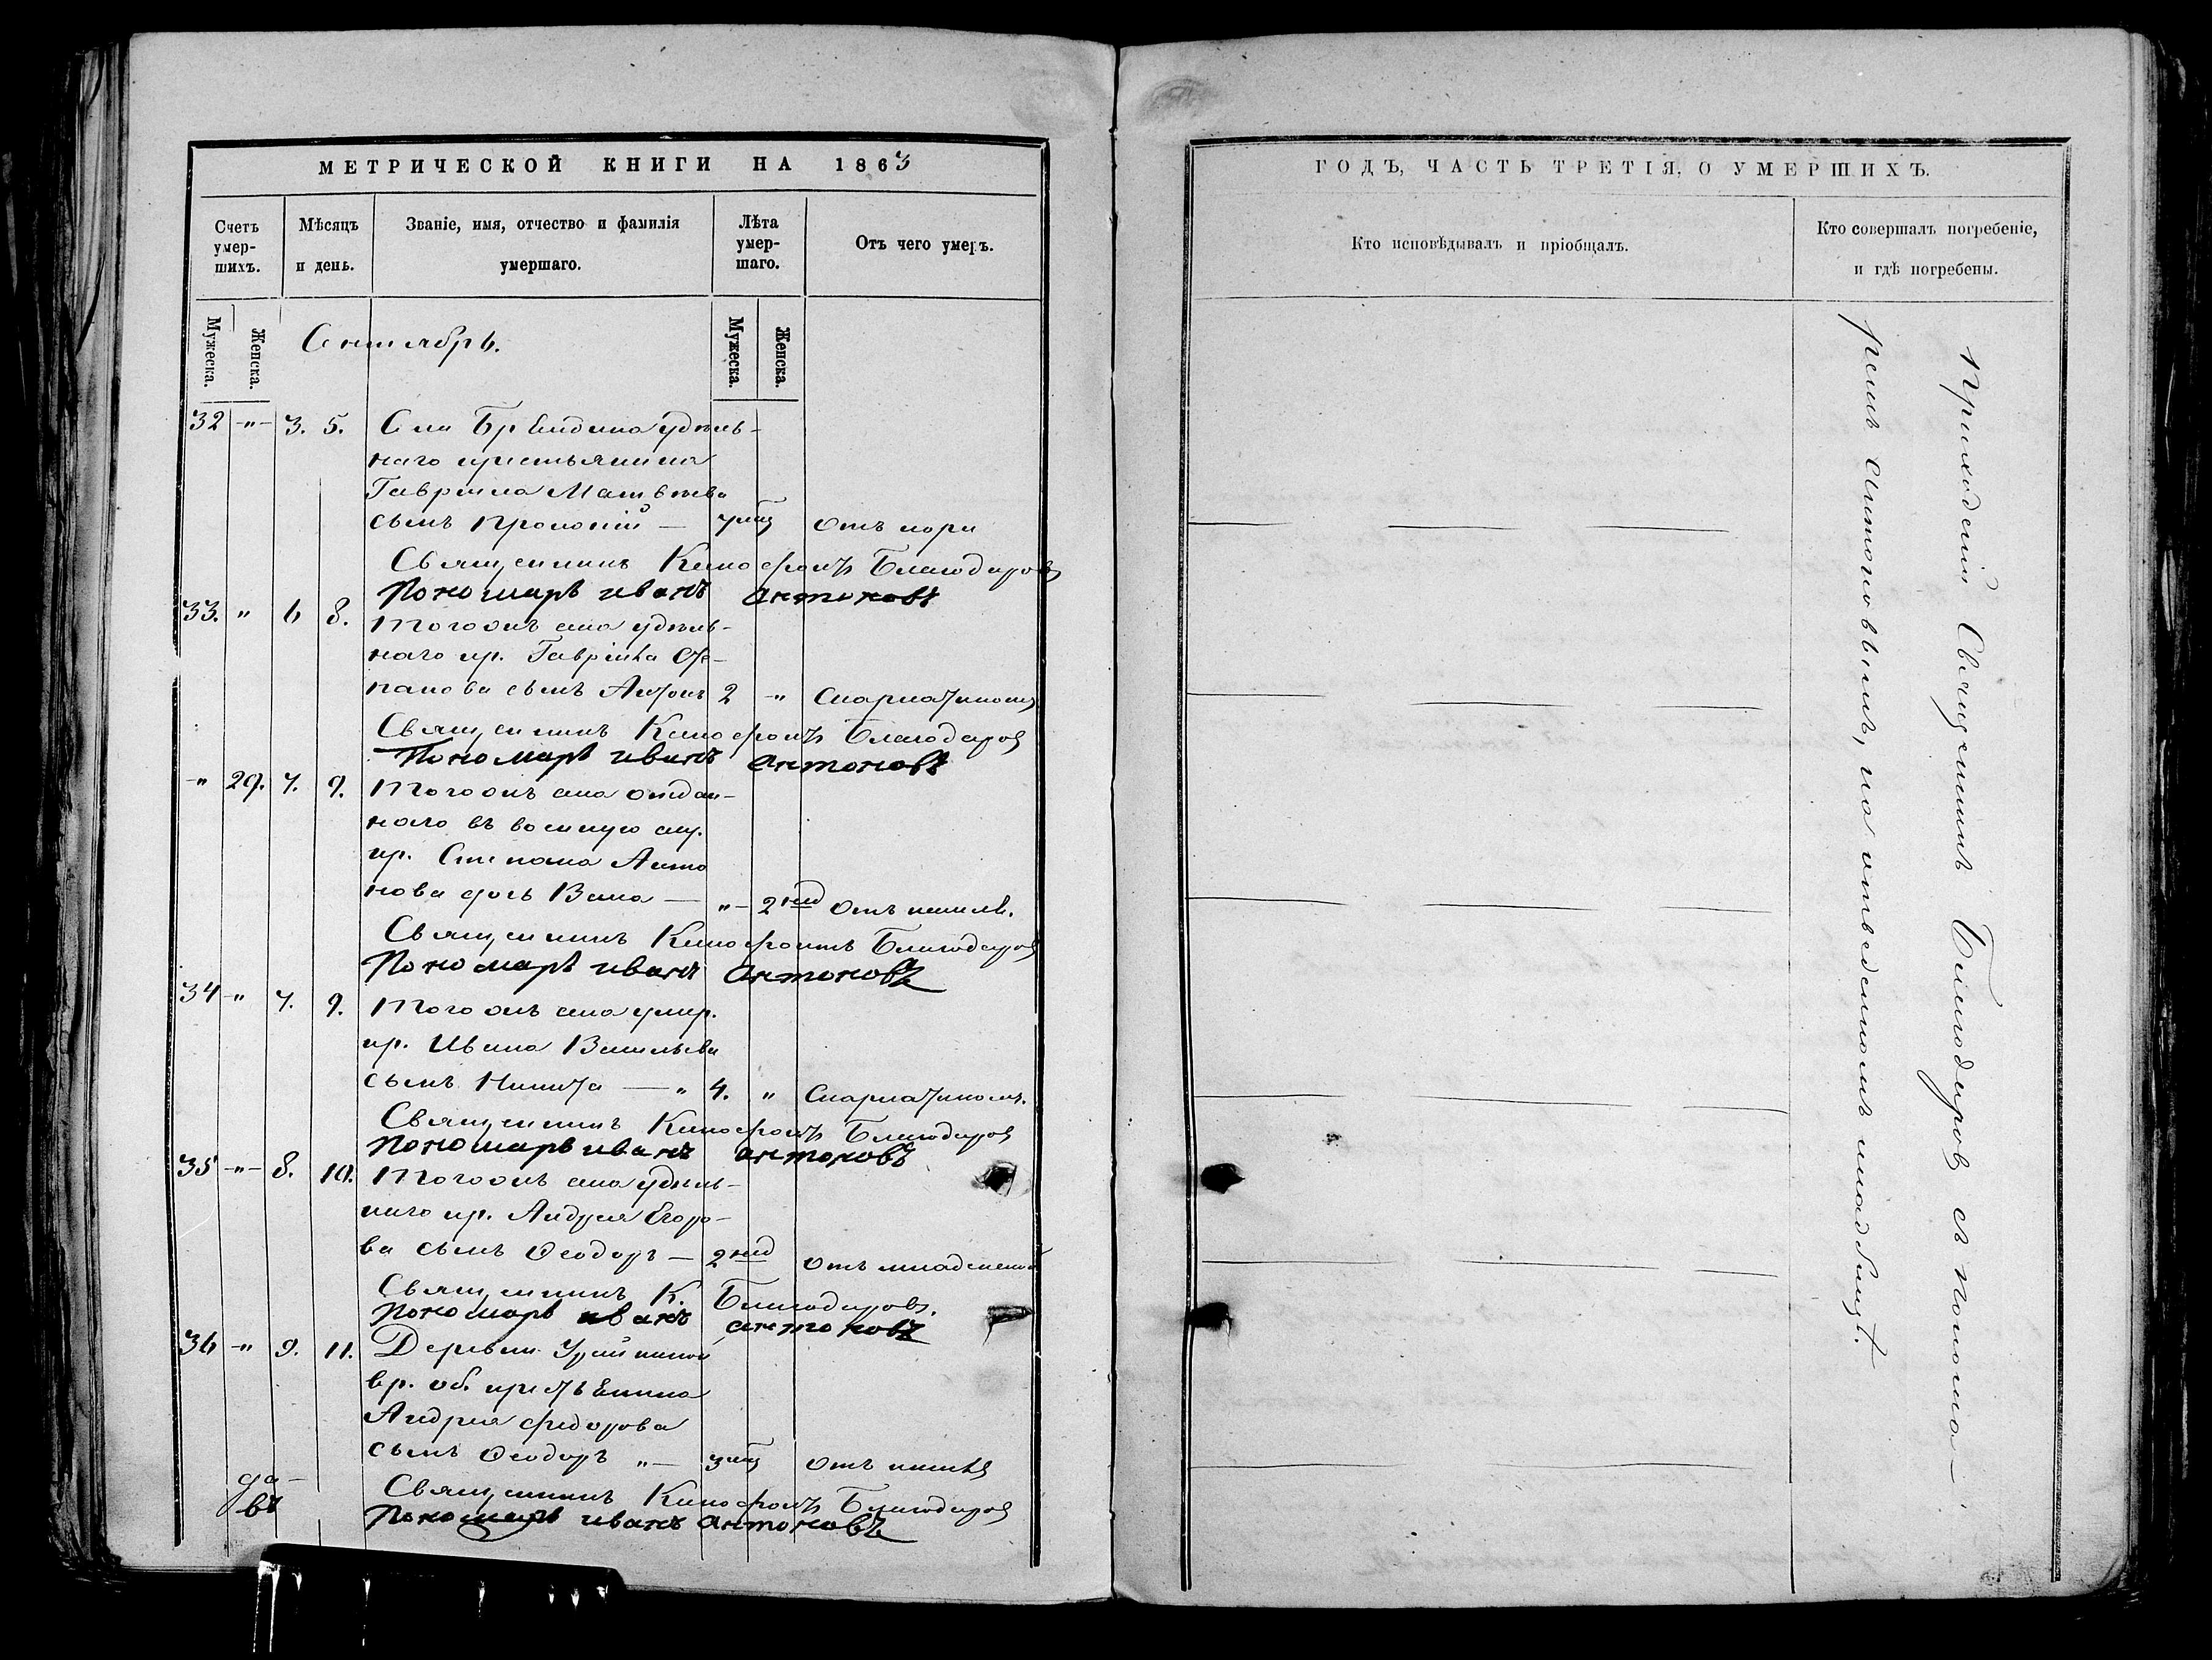 МЕТРИЧЕСКОЙ КНИГИ НА 1863
Счетъ умер-шихъ.
Мѣсяцъ и день.
Званіе, имя, отчество и фамилія умершаго.
Лѣта умер-шаго.
Отъ чего умеръ.
Мужеска.
Женска.
Мужеска.
Женска.
Сентябрь.
32 -"- 3. 5. Села удѣль-
наго крестьянина
Гавріила Матвѣева
сынъ Прокопій — 7 мцъ Отъ кори
Священникъ Ксенофонтъ Благодаровъ
Пономарь иванъ антоновъ
33. " 6 8. Тогожъ села удѣль-
наго кр. Гавріила Сте-
панова сынъ Антонъ 2 -"
Священникъ Ксенофонтъ Благодаровъ
Пономарь иванъ антоновъ
-" 29. 7. 9. Тогожъ села отдан-
наго въ военную слу.
кр. Степана Анто
нова дочь Анна — "- 2 нед Отъ
Священникъ Ксенофонтъ Благодаровъ
Пономарь иванъ антоновъ
34 -" 7. 9. Тогожъ села умер.
кр. Ивана Васильева
сынъ Никита — " 4. "
Священникъ Ксенофонтъ Благодаровъ
Пономарь иванъ антоновъ
35 -"- 8. 10. Тогожъ села удѣль-
наго кр. Андрея Егоро-
ва сынъ Ѳеодоръ — 2 нед Отъ
Священникъ К. Благодаровъ.
Пономарь иванъ антоновъ
36 -" 9. 11. Деревни
вр. об. крестьянина
Андрея Федорова
сынъ Ѳеодоръ "— 3 мцъ Отъ кашля
Священникъ Ксенофонтъ Благодаровъ
Пономарь иванъ антоновъ
ГОДЪ, ЧАСТЬ ТРЕТІЯ, О УМЕРШИХЪ.
Кто исповѣдывалъ и пріобщалъ.
Кто совершалъ погребеніе,
и гдѣ погребены.
Приходскій Священникъ Благодаровъ съ понома-
ремъ Антоновымъ, на отведенномъ кладбищѣ.